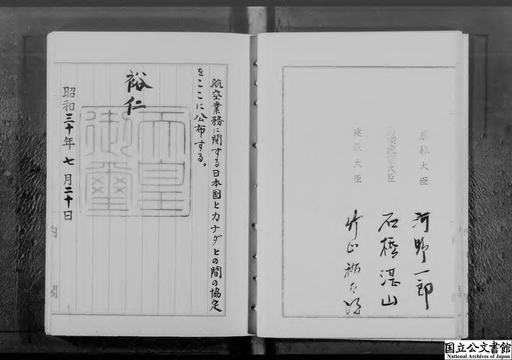 農林大臣 河野一郎
通商産業大臣 石橋湛山
建設大臣 竹山祐太郎
航空業務に関する日本国とカナダとの間の協定
をここに公布する。
裕仁
天皇
御璽
昭和三十年七月二十日
国立公文書館
National Archives of Japan